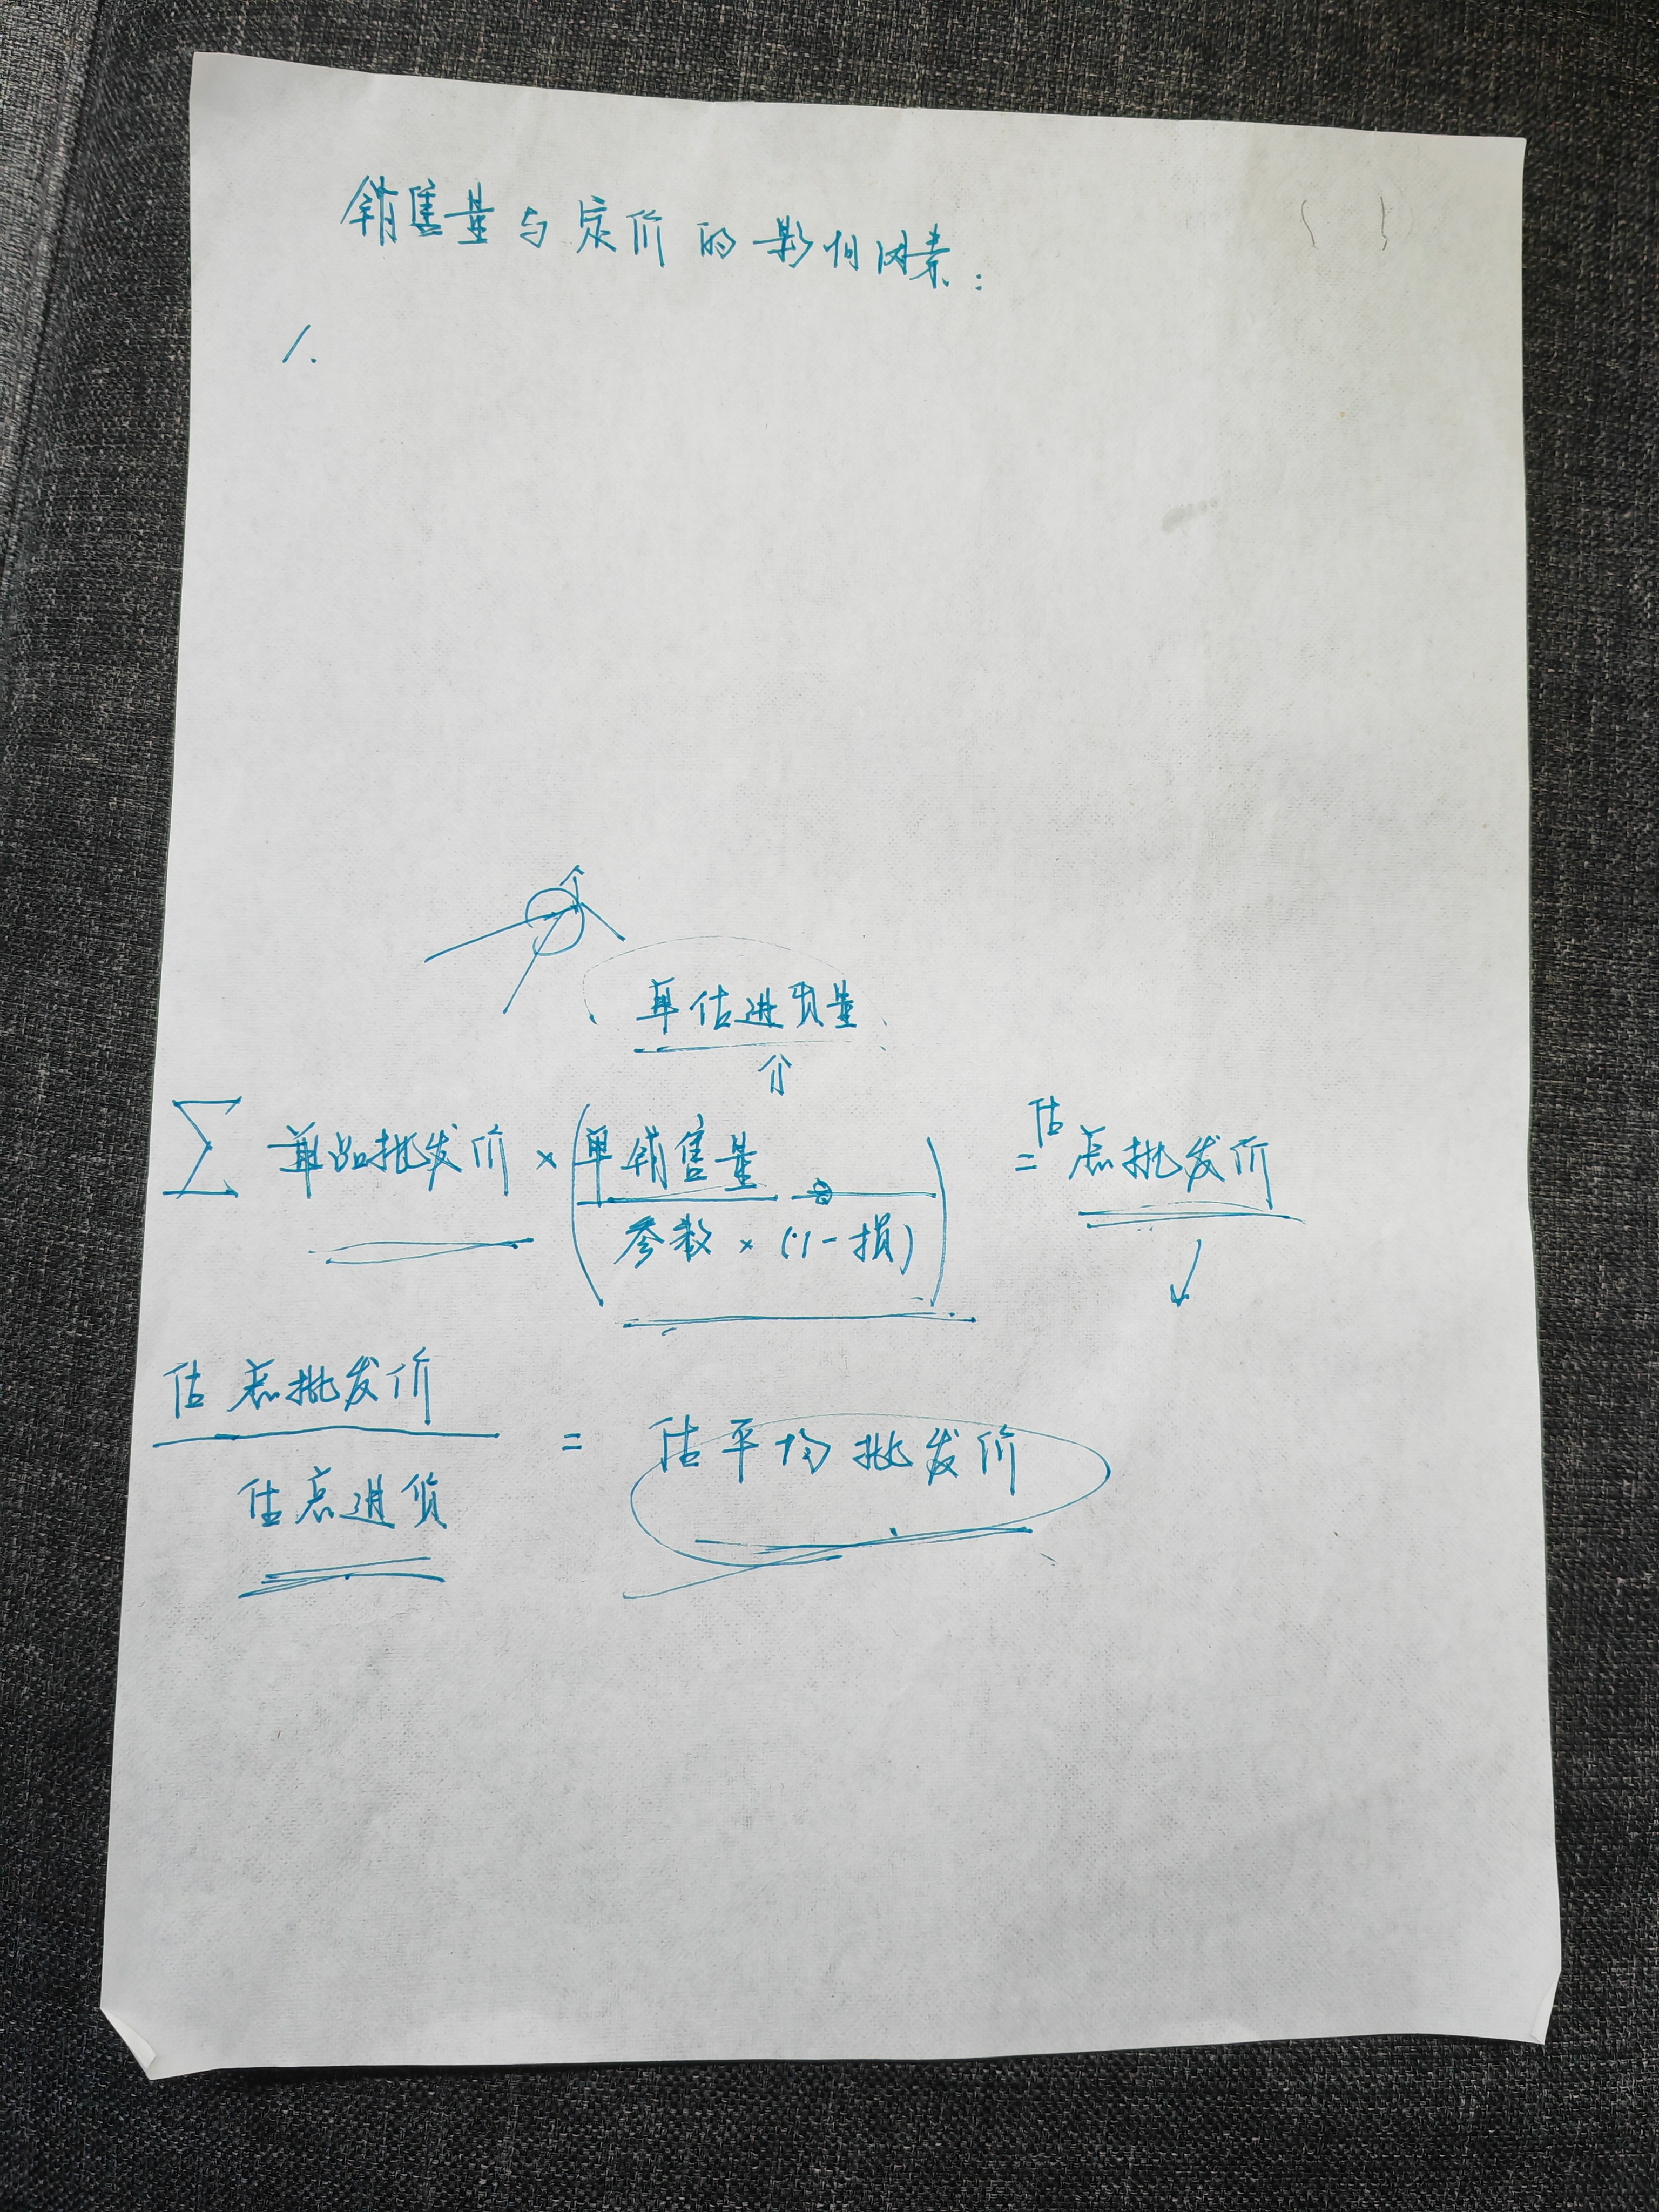 销售量与定价的影响因素:
1.
单估进货量
∑ 单品批发价 × (单销售量 / 参数 × (1-损)) = 估总批发价
估总批发价 / 估总进货 = 估平均批发价